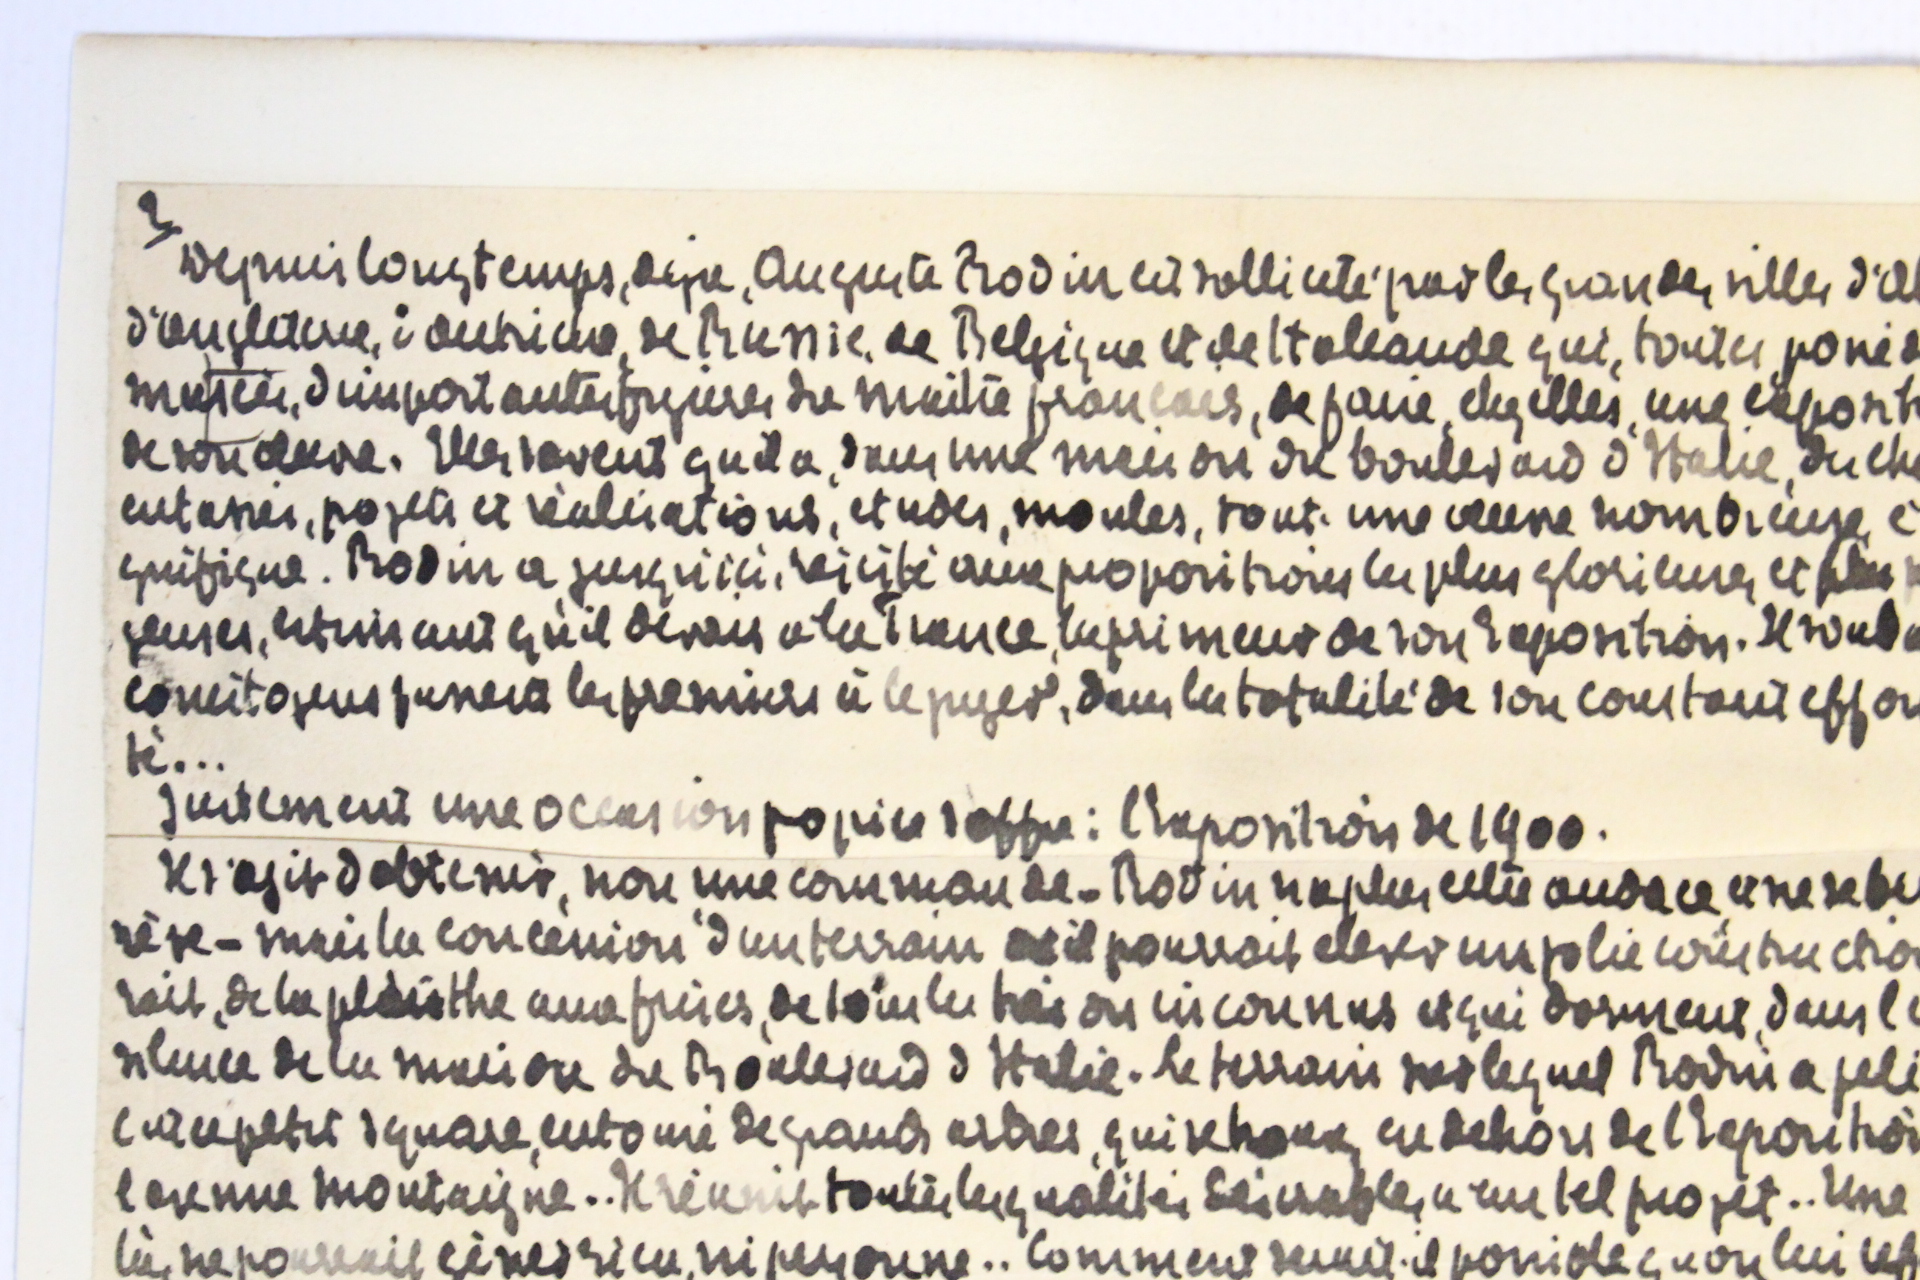 Depuis longtemps, deja, Auguste Rodin est sollicité par les grandes villes d'Al
d'angleterre, d'autriche, de Russie, de Belgique et de Hollande qui, toutes, possèd
musées, d'importantes figures du maitre français, de faire, chez elles, une exposit
de son œuvre. Elles savent qu'il a, dans une maison du boulevard d'Italie, des che
entassés, projets et réalisations, etudes, moules, tout une œuvre nombreuse, e
gnifique. Rodin a jusqu'ici, résisté aux propositions les plus glorieuses et plus
geuses, estimant qu'il devait à la France, la primeur de son Exposition. Il voul
concitoyens fussent les premiers à le juger, dans la totalité de son constant effor
té...
Justement une occasion propice s'offre : l'Exposition de 1900.
Il s'agit d'obtenir, non une commande - Rodin n'a plus cette audace, et ne se be
rêve - mais la concession d'un terrain où il pourrait elever un jolie construction
rait, de la plinthe aux frises, de inconnus et qui dorment, dans l
silence de la maison du Boulevard d'Italie. Le terrain sur lequel Rodin a jeté
c'est ce petit square, entouré de grands arbres, qui se trouve, en dehors de l'Exposition
l'avenue Montaigne.. Il réunit toutes les qualités désirables, a un tel projet.. Une
là, ne pourrait gêner rien, ni personne.. Comment serait-il possible qu'on lui ref